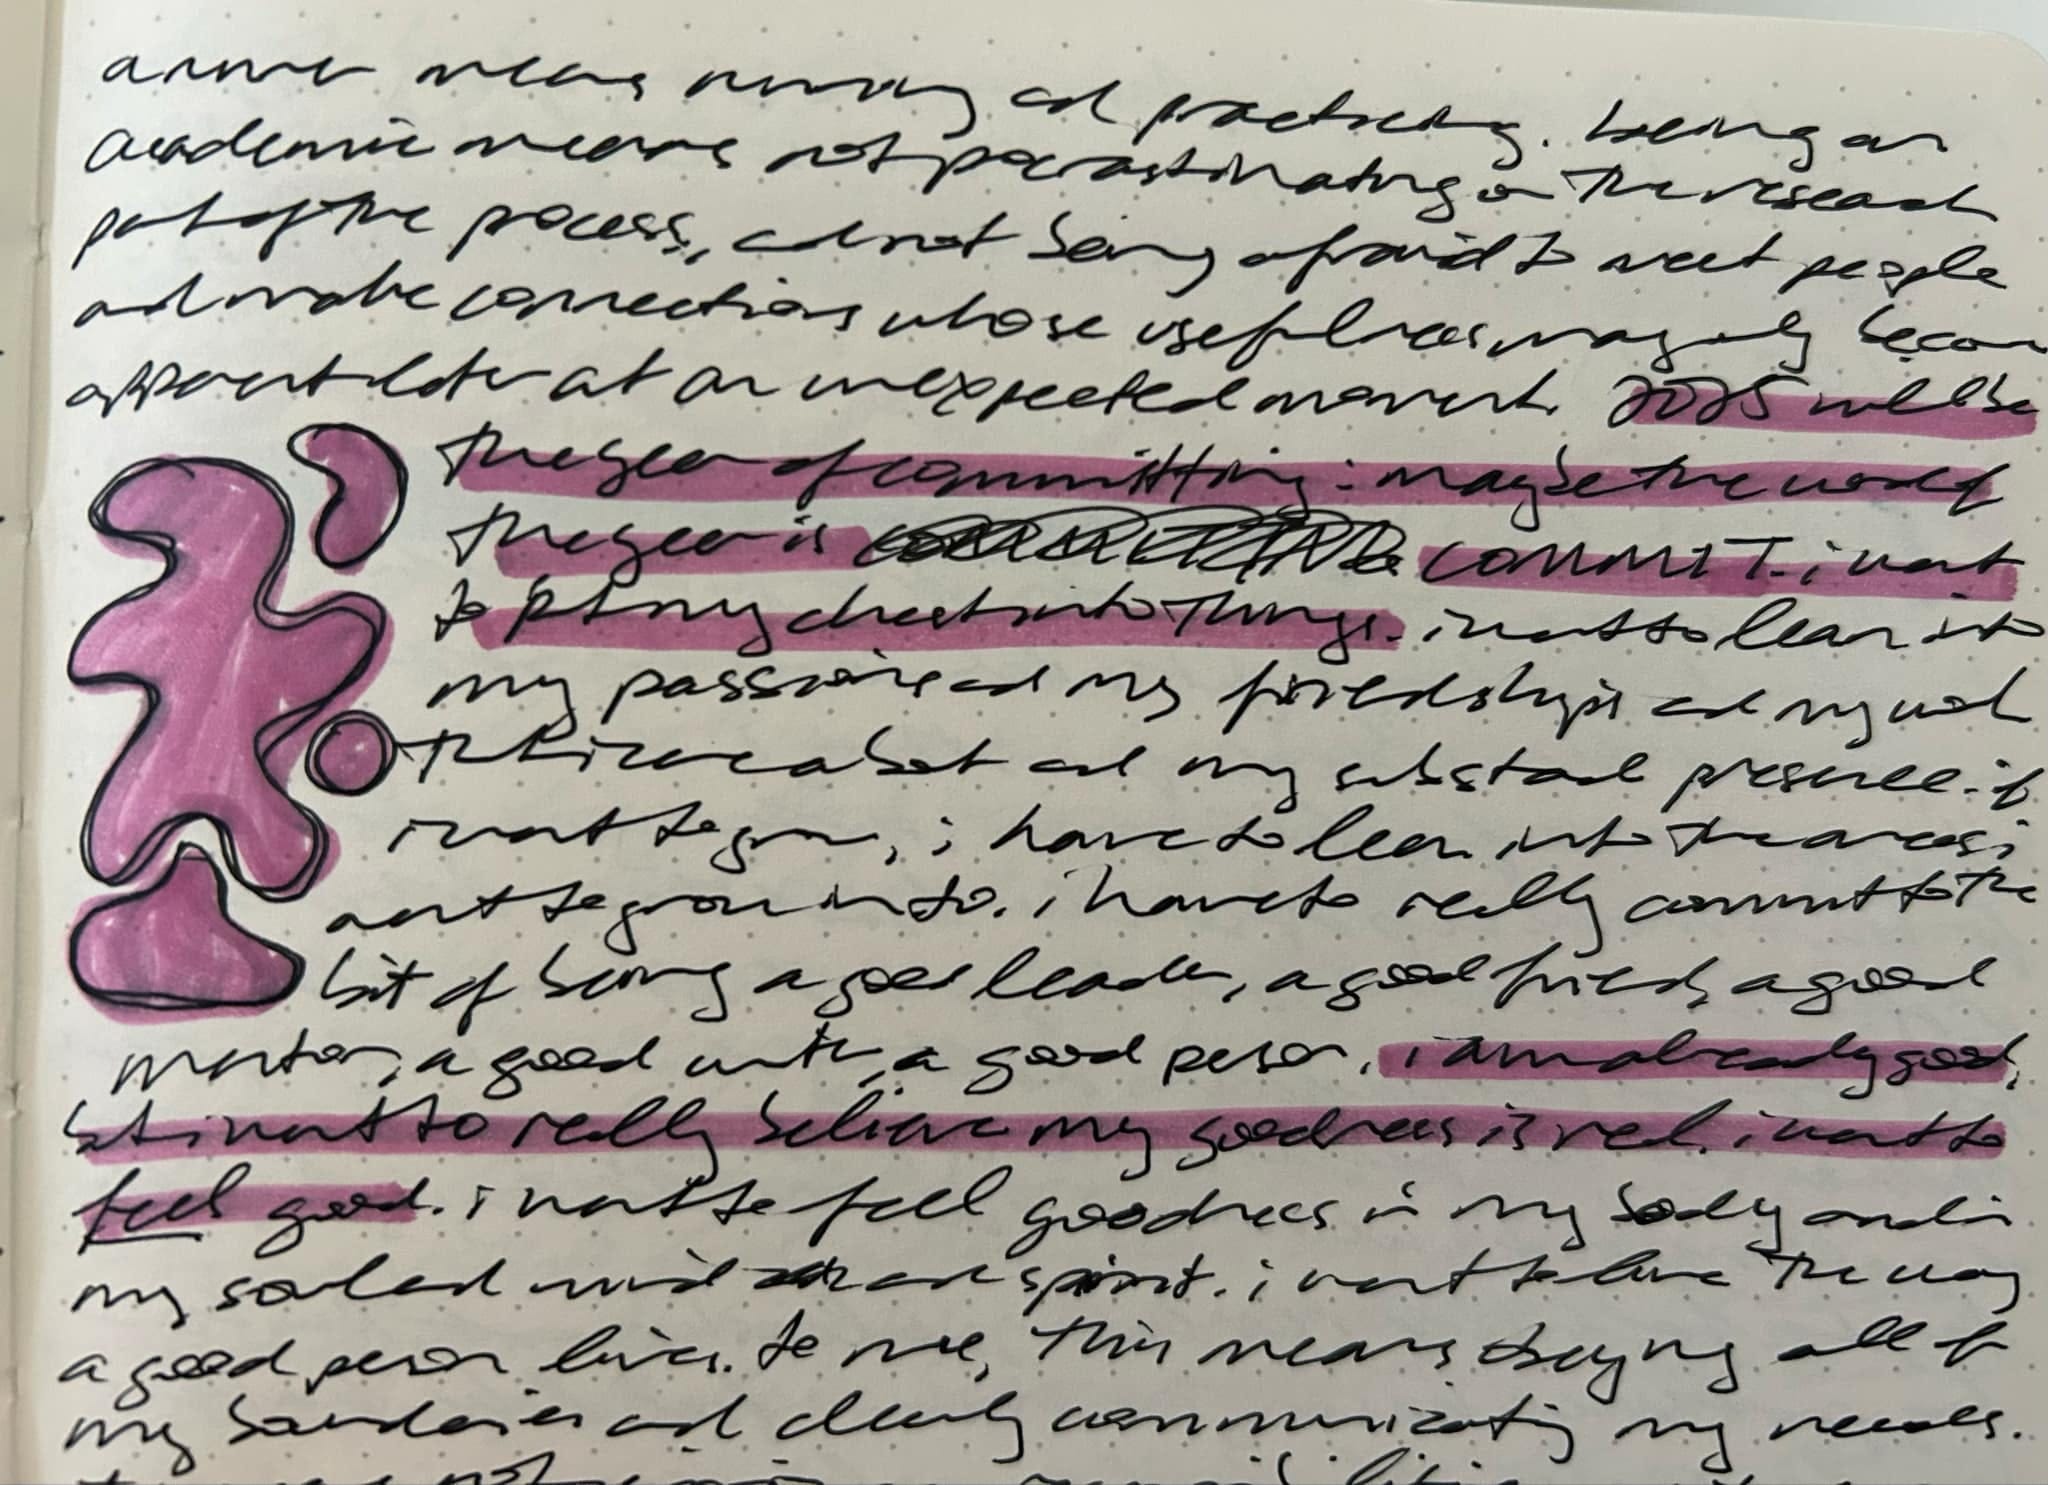 a runner means running and practicing. being an
academic means not procrastinating on the research
part of the process, and not being afraid to meet people
and make connections whose usefulness may only become
apparent later at an unexpected moment. 2025 will be
the year of committing: maybe the word of
the year is COMMIT. i want
to put my chest into things. i want to lean into
my passions and my friendships and my work
that i care about and my substack presence. if
i want to grow, i have to lean into the areas i
want to grow into. i have to really commit to the
bit of being a good leader, a good friend, a good
mentor, a good writer, a good person. i am already good,
but i want to really believe my goodness is real. i want to
feel good. i want to feel goodness in my body and in
my soul and mind and spirit. i want to live the way
a good person lives. to me, this means obeying all of
my boundaries and clearly communicating my needs.
not